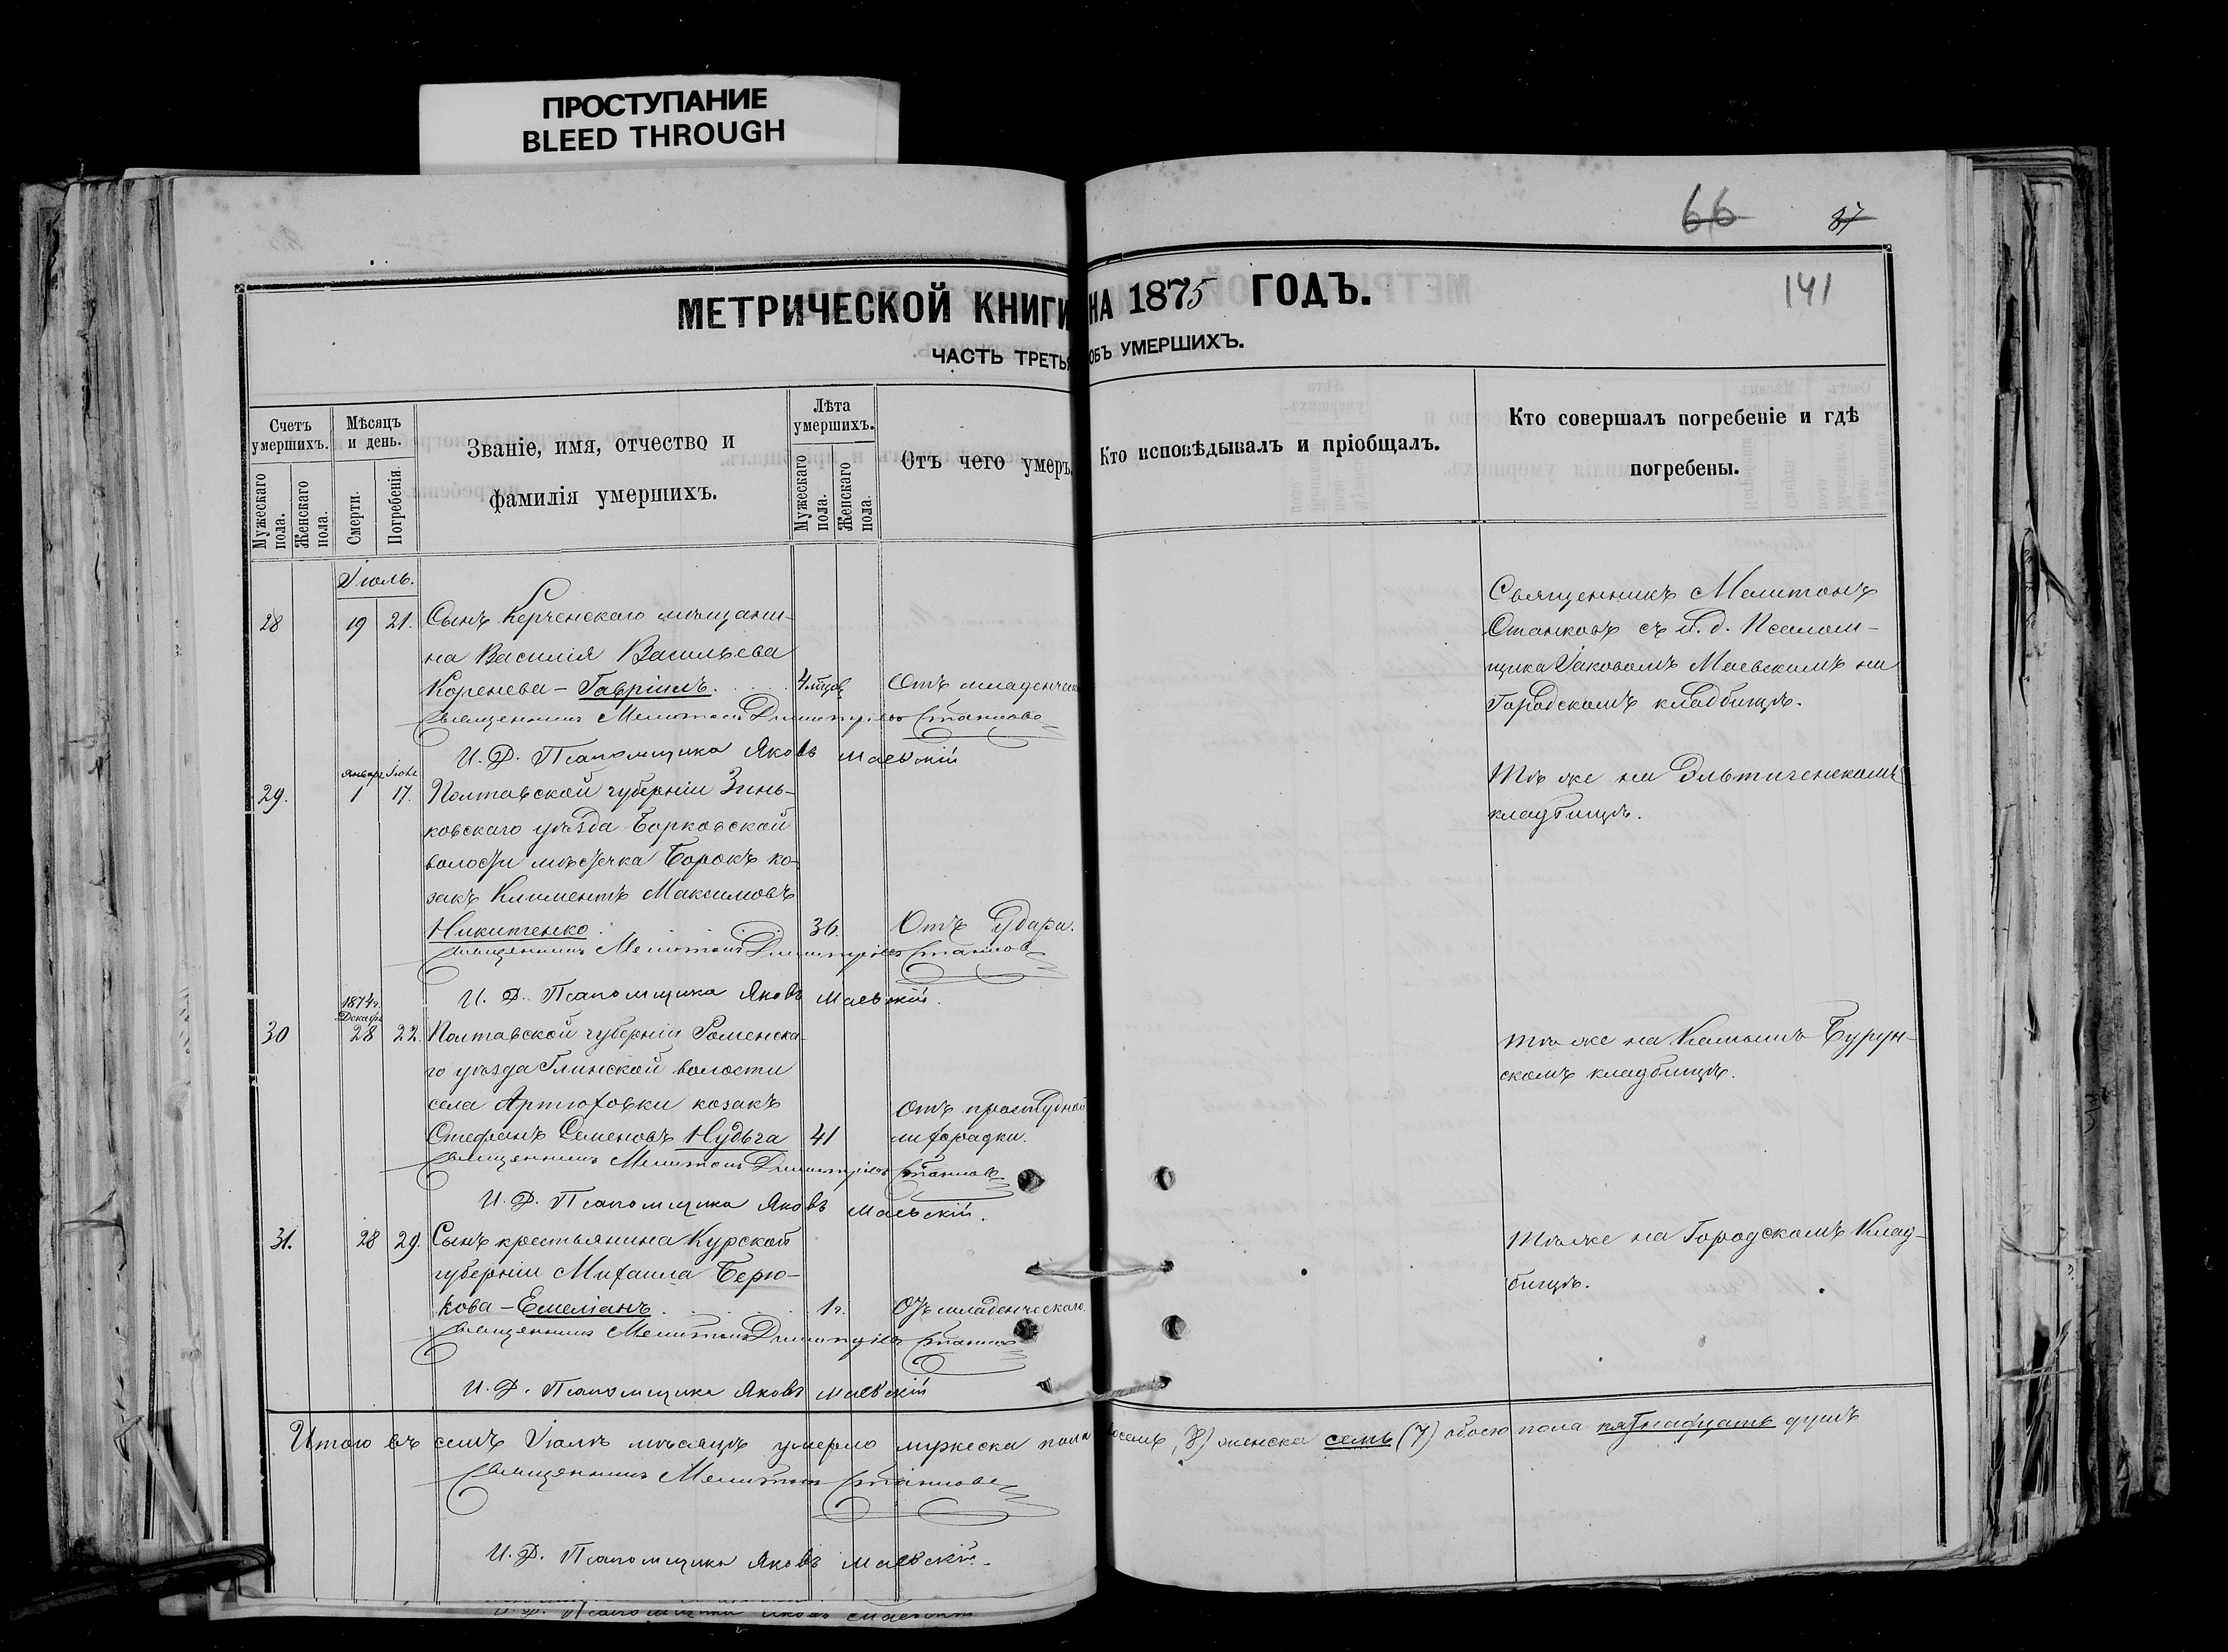 ПРОСТУПАНИЕ
BLEED THROUGH
66
87
141
МЕТРИЧЕСКОЙ КНИГИ НА 1875 ГОДЪ.
ЧАСТЬ ТРЕТЬЯ ОБЪ УМЕРШИХЪ.
Счетъ умершихъ.
Мужескаго пола.
Женскаго пола.
Мѣсяцъ и день.
Смерти.
Погребенія.
Званіе, имя, отчество и
фамилія умершихъ.
Лѣта умершихъ.
Мужескаго пола.
Женскаго пола.
Отъ чего умеръ.
Кто исповѣдывалъ и пріобщалъ.
Кто совершалъ погребеніе и гдѣ
погребены.
Іюль.
28 19 21. Сынъ Керченскаго мѣщани-
на Василія Васильева
Коренева - Гавріилъ. 4 мѣсяц Отъ младенческ
Священникъ Мелитонъ Димитріевъ Станковъ
И. Д. Псаломщика Яковъ Маевскій
Священникъ Мелитонъ
Станковъ съ и. д. Псалом-
щика Іаковомъ Маевскимъ на
Городскомъ кладбищѣ.
Январь Іюль
29. 1 17. Полтавской губерніи Зинь-
ковскаго уѣзда Борковской
волости мѣстечка Борокъ ко-
закъ Климентъ Максимовъ
Никитенко 36. Отъ удара.
Священникъ Мелитонъ Димитріевъ Станковъ
И. Д. Псаломщика Яковъ Маевскій.
Тѣ же на Эльтигенскомъ
кладбищѣ.
1874 г.
Декабр
30 28 22. Полтавской губерніи Роменска-
го уѣзда Глинской волости
села Артюховки козакъ
Стефанъ Семеновъ Нудьга 41 Отъ простудной
лихорадки.
Священникъ Мелитонъ Димитріевъ Станковъ
И. Д. Псаломщика Яковъ Маевскій.
Тѣ же на Камышъ Бурун-
скомъ кладбищѣ.
31. 28 29. Сынъ крестьянина Курской
губерніи Михаила Берю-
кова - Емеліанъ 1 г. Отъ младенческаго.
Священникъ Мелитонъ Димитріевъ Станковъ
И. Д. Псаломщика Яковъ Маевскій
Тѣ же на Городскомъ Клад-
бищѣ.
Итого въ семъ Іюлѣ мѣсяцѣ умерло мужеска пола восемь (8) женска семь (7) обоего пола пятнадцать душъ
Священникъ Мелитонъ Станковъ
И. Д. Псаломщика Яковъ Маевскій.